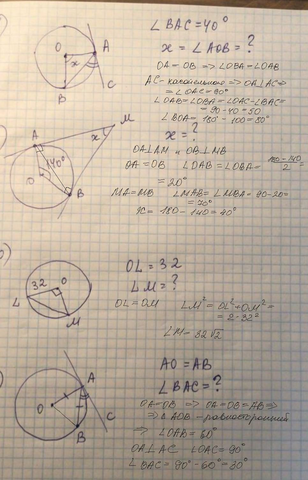 ∠BAC=40°
x = ∠AOB = ?
OA=OB ⇒ ∠OBA=∠OAB
AC-касательная ⇒ OA⊥AC ⇒
⇒ ∠OAC=90°
∠OAB=∠OBA=∠OAC-∠BAC=
=90-40=50
∠BOA=180°-100=80°
O
A
x
B
C
x = ?
OA⊥AM и OB⊥MB
OA=OB ∠OAB=∠OBA= (180-140)/2 =
=20°
MA=MB ∠MAB=∠MBA=90-20=
=70°
x=180-140=40°
A
x
M
O
140°
B
OL=32
LM=?
OL=OM LM²=OL²+OM²=
=2·32²
LM=32√2
32
O
L
M
AO=AB
∠BAC=?
OA=OB ⇒ OA=OB=AB ⇒
⇒ △AOB-равносторонний
⇒ ∠OAB=60°
OA⊥AC ∠OAC=90°
∠BAC=90°-60°=30°
A
O
B
C